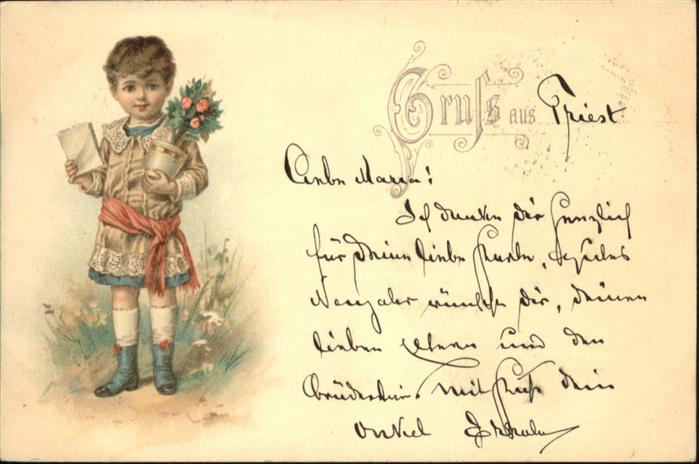 Gruss aus Triest
Liebe Maria!
Ich danke Dir herzlich
für Deine liebe Karte,
Neujahr wünsche Dir, deinen
lieben Eltern und den
Brüderlein mit Kuß dein
Onkel